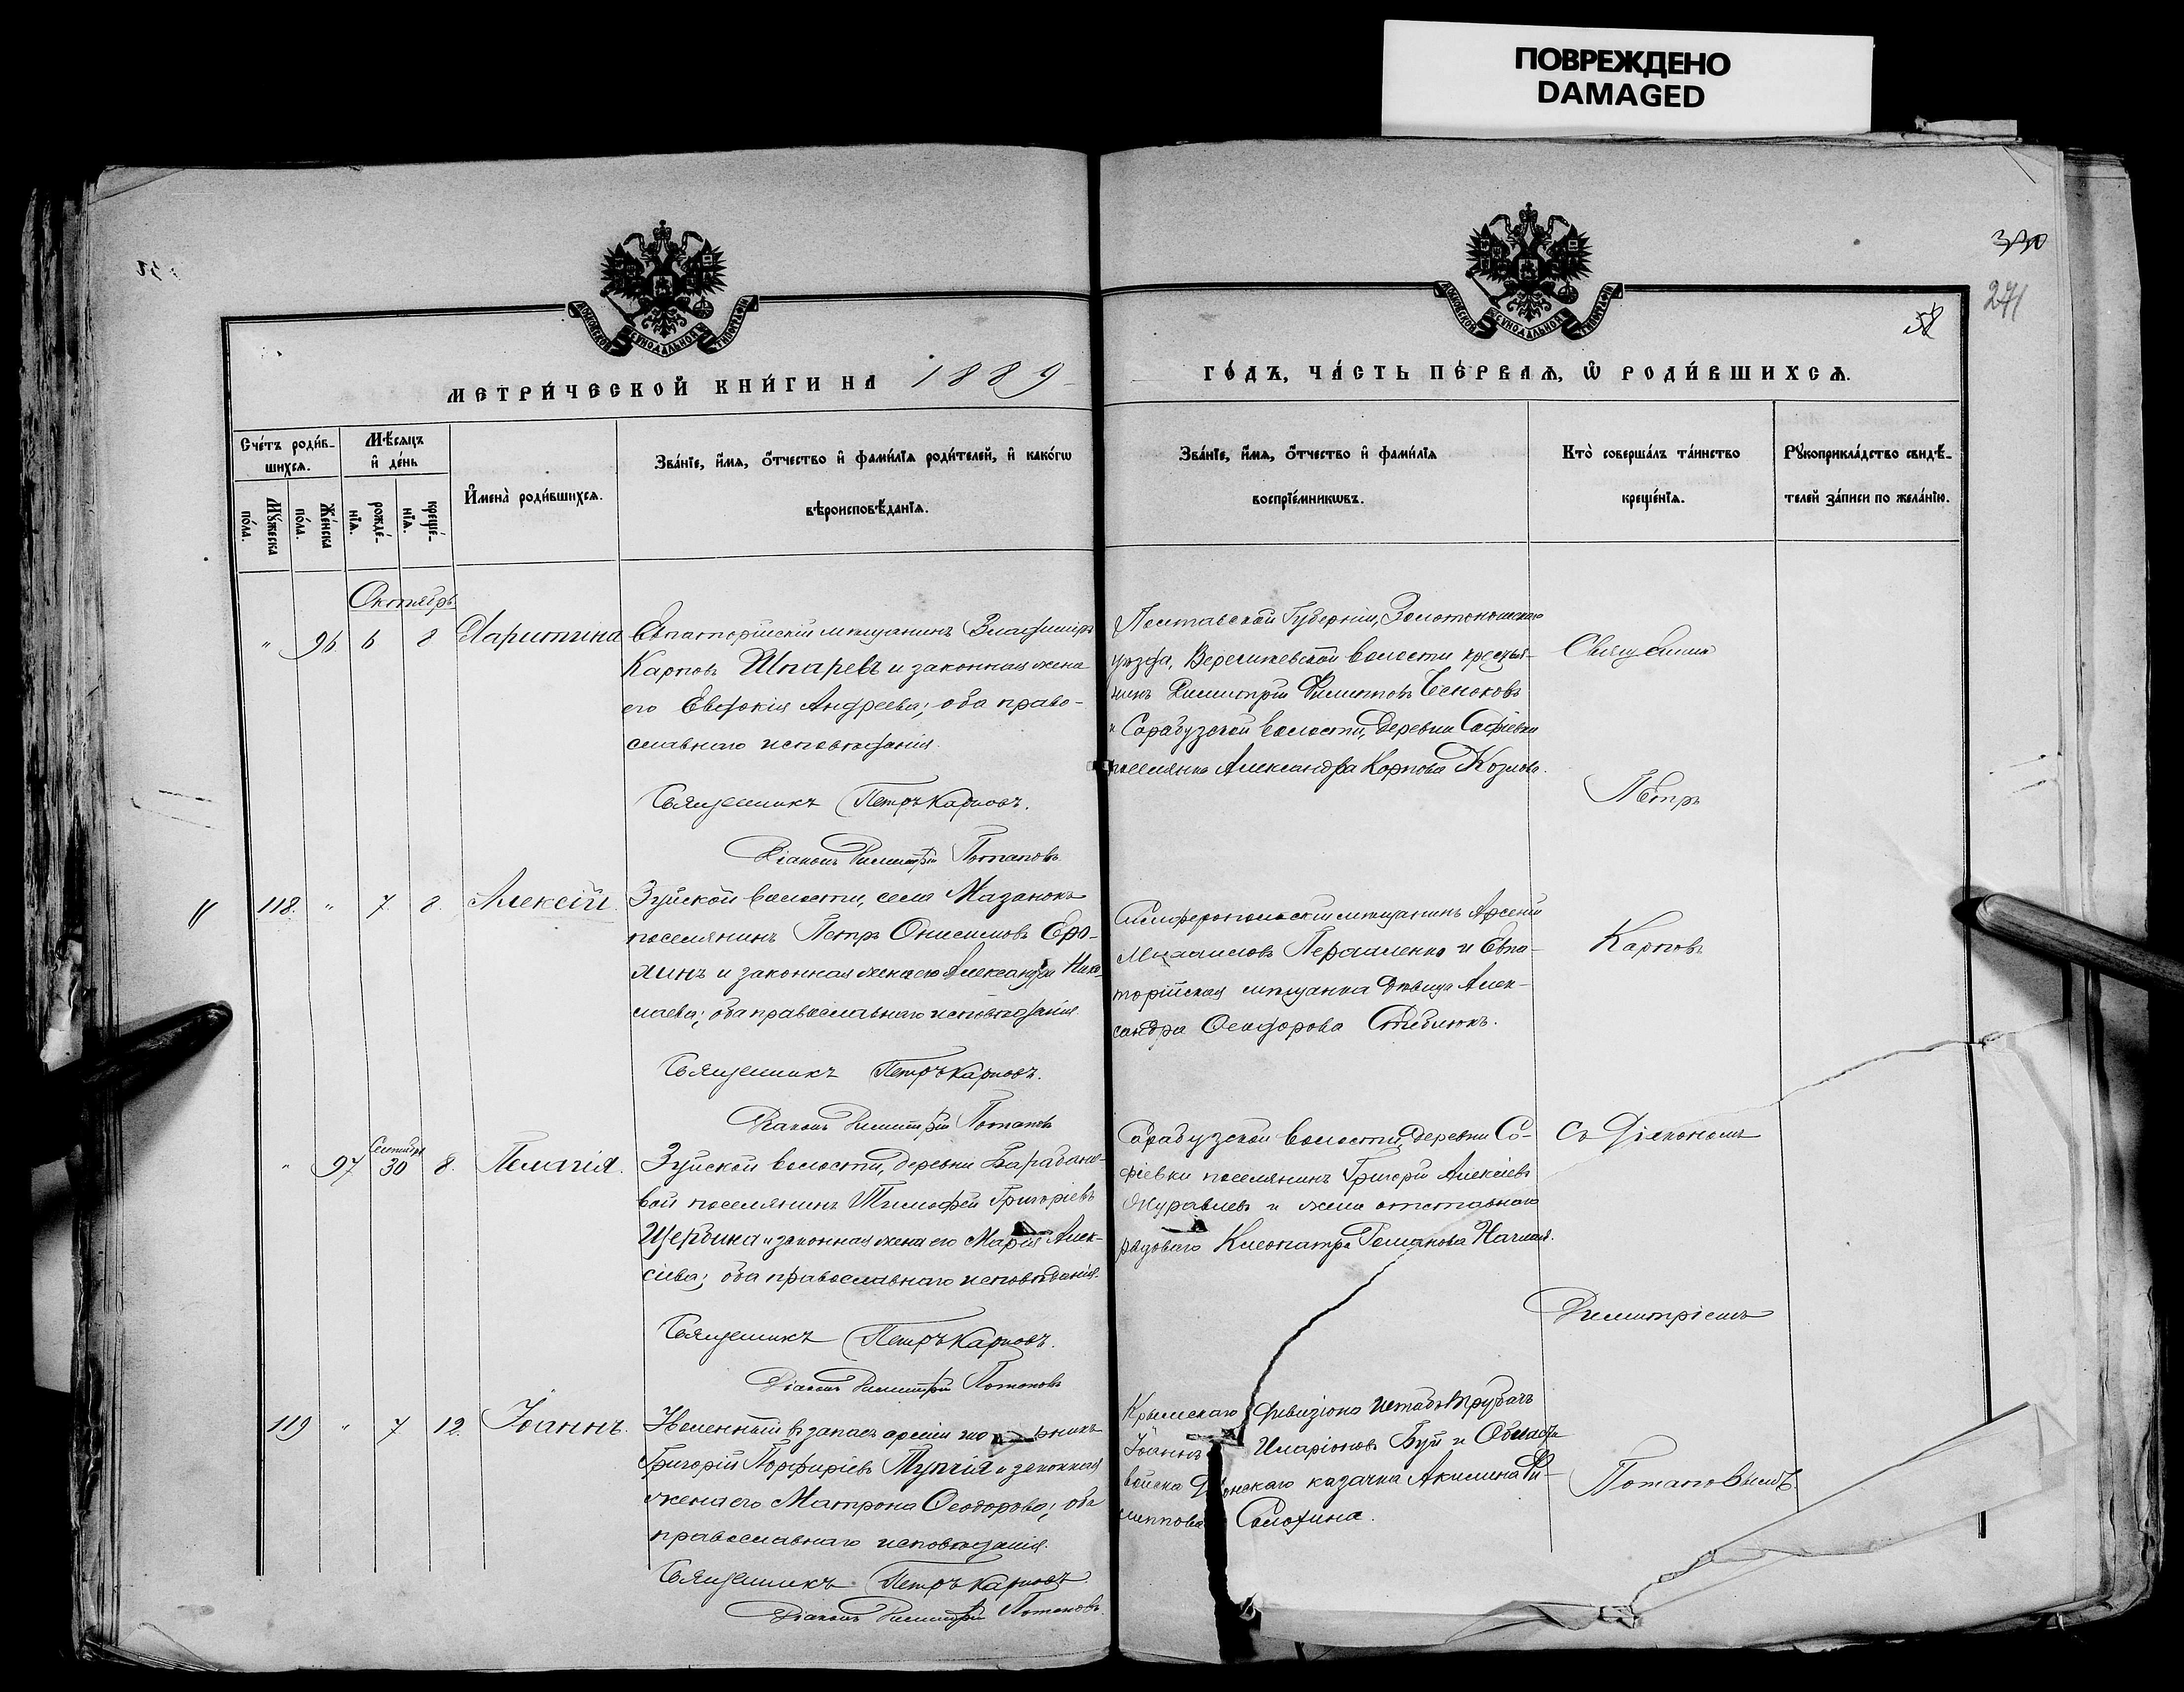 ПОВРЕЖДЕНО
DAMAGED
330
271
58
МОСКОВСКОЙ СѴНОДАЛЬНОЙ ТИПОГРАФІИ
МОСКОВСКОЙ СѴНОДАЛЬНОЙ ТИПОГРАФІИ
МЕТРИ́ЧЕСКОЙ КНИ́ГИ НА 1889
ГО́ДЪ, ЧА́СТЬ ПЕ́РВАѦ, Ѡ҆ РОДИ́ВШИХСѦ.
Сче́тъ роди́в-
шихсѧ.
Мꙋ́жеска по́ла.
Же́нска по́ла.
Мѣ́сѧцъ и҆ де́нь
рожде́-нїѧ.
креще́-нїѧ.
И҆мена̀ роди́вшихсѧ.
Зва́нїе, и҆́мѧ, ѻ҆́тчество и҆ фами́лїѧ роди́телей, и҆ како́гѡ
вѣроисповѣ́данїѧ.
Зва́нїе, и҆́мѧ, ѻ҆́тчество и҆ фами́лїѧ
воспрїе́мникѡвъ.
Кто̀ соверша́лъ та́инство
креще́нїѧ.
Рꙋкоприкла́дство свидѣ́-
телей за́писи по жела́нїю.
Октябрь
" 96 6 8 Харитина
Евпаторійскій мѣщанинъ Владиміръ
Карповъ Шпаревъ и законная жена
его Евдокія Андреева; оба право-
славнаго исповѣданія.
Священникъ Петръ Карповъ.
Діаконъ Димитрій Потаповъ
Полтавской Губерніи, Золотоношскаго
уѣзда, волости крестья-
нинъ Димитрій Филипповъ Чесноковъ
и Сарабузской волости, деревни Софіевки
поселянка Александра Карпова Козлова.
Священникъ
Петръ
118. " 7. 8. Алексій.
Зуйской волости, села Мазанокъ
поселянинъ Петръ Онисимовъ Еро-
хинъ и законная жена его Александра Нико-
лаева; оба православнаго исповѣданія
Священникъ Петръ Карповъ.
Діаконъ Димитрій Потаповъ
Симферопольскій мѣщанинъ Арсеній
и Евпа-
торійская мѣщанка дѣвица Алек-
сандра Ѳеодорова
Карповъ
" 97 Сентября 30 8. Пелагія.
Зуйской волости, деревни Барабано-
вой поселянинъ Тимоѳей Григоріевъ
Щербина и законная жена его Марія Алек-
сіева; оба православнаго исповѣданія.
Священникъ Петръ Карповъ.
Діаконъ Димитрій Потаповъ
Сарабузской волости, деревни Со-
фіевки поселянинъ Григорій Алексіевъ
Журавлевъ и жена отставнаго
рядоваго Клеопатра Романова
съ Діакономъ
Димитріемъ
119 " 7 12. Іоаннъ.
Уволенный въ запасъ арміи
Григорій Порфиріевъ и законная
жена его Матрона Ѳеодорова; оба
православнаго исповѣданія.
Священникъ Петръ Карповъ
Діаконъ Димитрій Потаповъ.
Крымскаго дивизіона штабъ-трубачъ
Іоаннъ Иларіоновъ Буй и Области
войска Донскаго казачка Акилина Фи-
липпова
Потаповымъ.